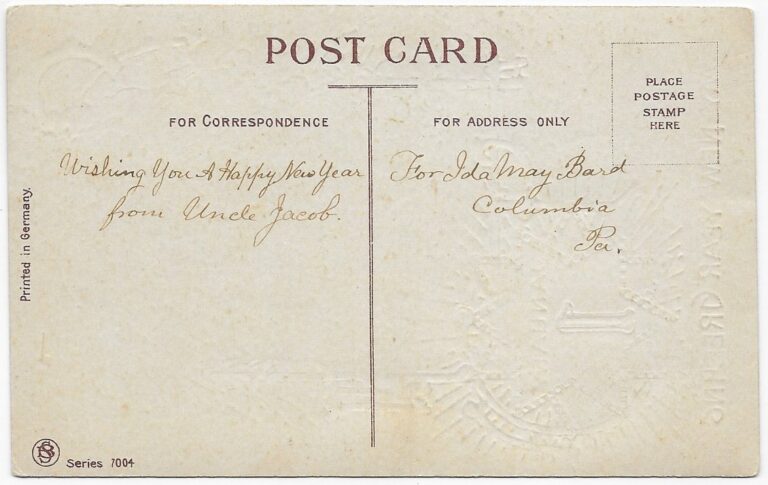 POST CARD
PLACE
POSTAGE
STAMP
HERE
FOR CORRESPONDENCE
FOR ADDRESS ONLY
Wishing You A Happy New Year
from Uncle Jacob.
For Ida May Bard
Columbia
Pa.
Printed in Germany.
Series 7004